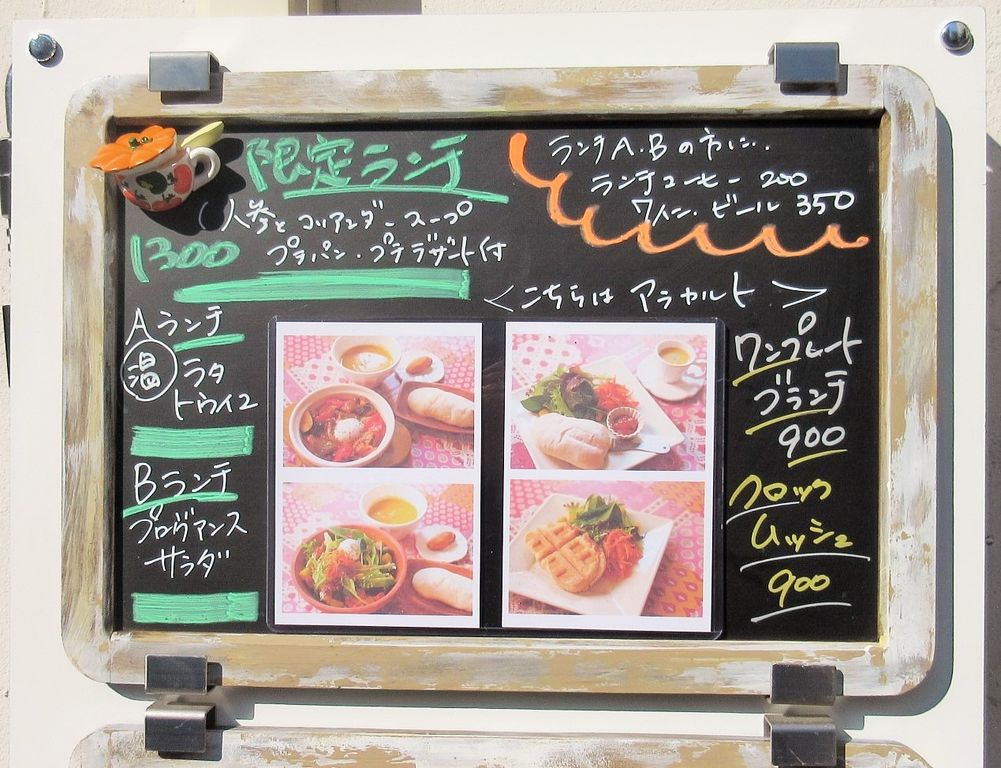 限定ランチ
人参とコリアンダースープ
1300 プチパン・プチデザート付
ランチA.Bの方に..
ランチコーヒー 200
ワイン・ビール 350
<こちらは アラカルト>
Aランチ
温 ラタ
トゥイユ
Bランチ
プロヴァンス
サラダ
ワンプレート
ブランチ
900
クロック
ムッシュ
900